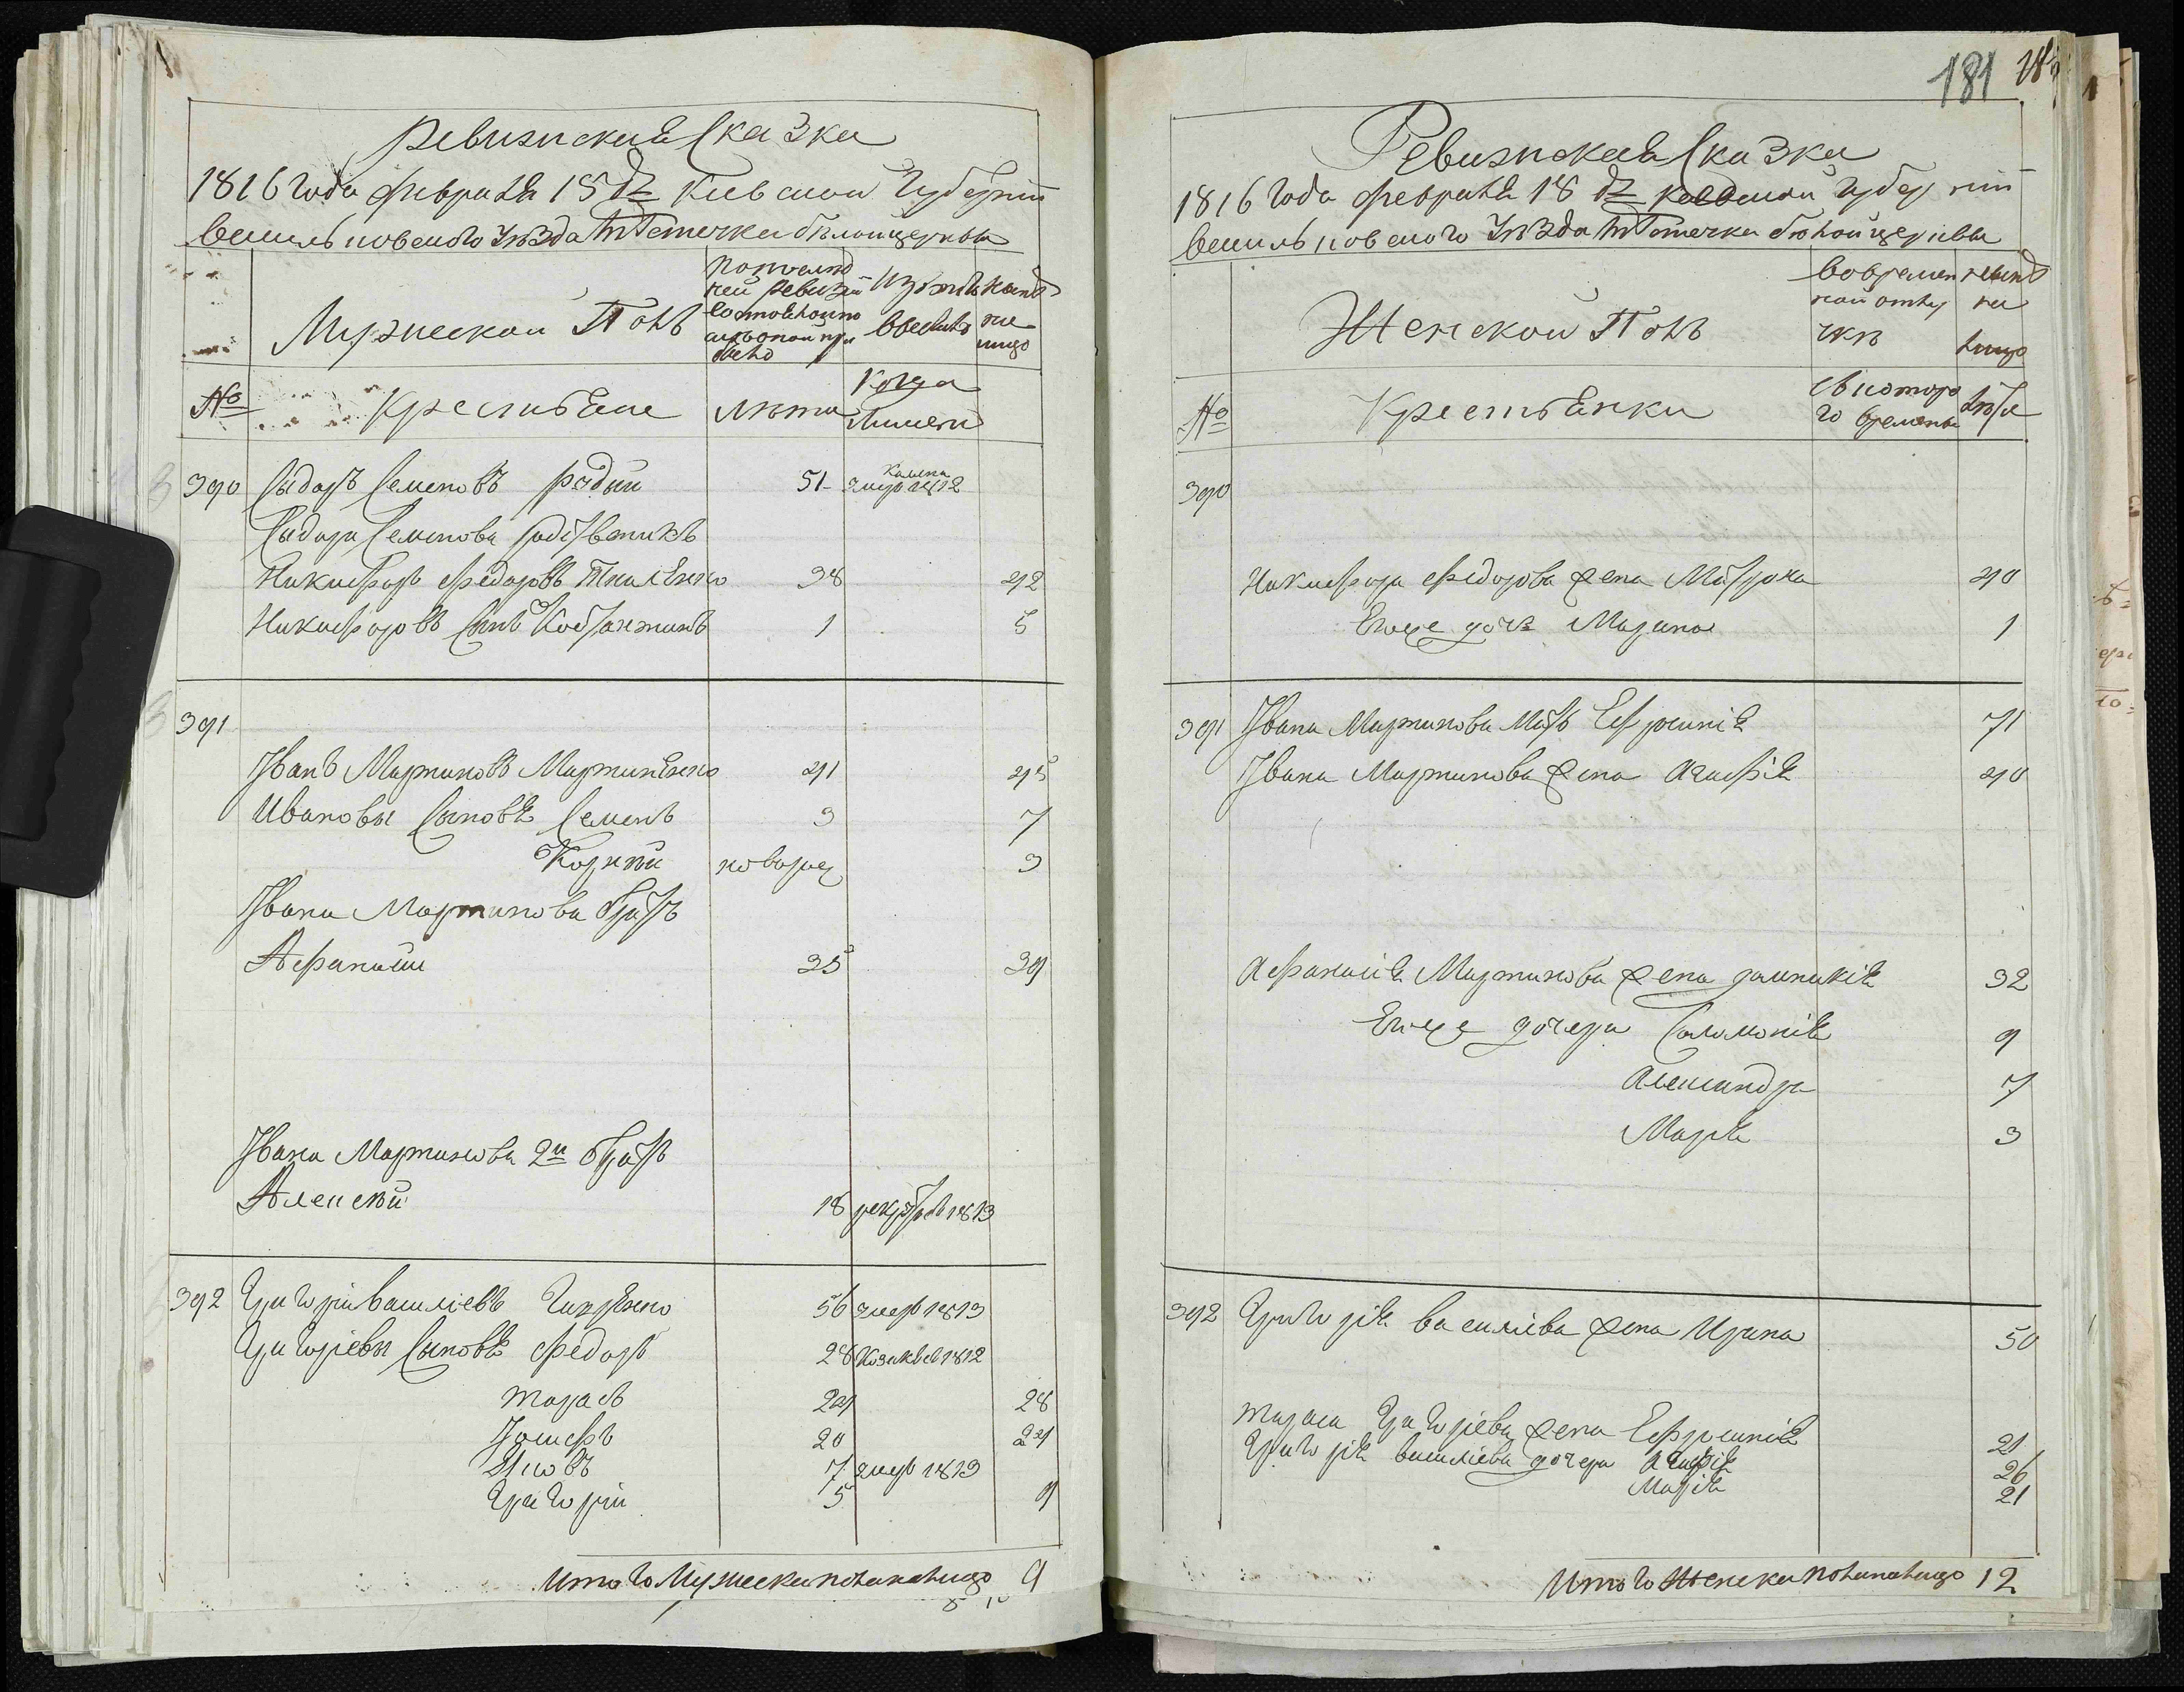 Ревизиская Сказка
1816 года февраля 15 дн Киевской Губернїи
васильковского Уѣзда мѣстечка бѣлойцеркви
Мужеской Полъ
По последней ревизїи состоялопо
Изъ того числа выбыло
Нынѣ налицо
№ Крестьяне Лѣта Когда имено
390 Сыдоръ Семеновъ рудый 51 умер 1812
Сыдора Семенова родственикъ
Никифоръ Федоровъ 38 42
Никифоровъ Сынъ Костантинъ 1 5
391
Иванъ Мартиновъ Мартиненко 41 45
Ивановы Сыновя Семенъ 3 7
Корнѣй новорож 3
Ивана Мартинова братъ
Афанасий 35 39
Ивана Мартинова 2й братъ
Алексѣй 18 рекрутъ в 1813
392 Григорий Василїевъ 56 умер 1813
Григорїевы Сыновя Федоръ 28 Козакъ в 1812
тарасъ 24 28
Іосифъ 20 24
Яковъ 7 умер 1813
Григорїй 5 9
Итого Мужеска пола налицо 9
181
Ревизская Сказка
1816 Года февраля 18 дн Киевской Губернїи
васильковского Уѣзда мѣстечка бѣлойцеркви
Женской Полъ
Во временной отлучкѣ
нынѣ на лицо
№ Крестьянки Съ которого времены лѣта
390
Никифора Федорова жена Мотрона 40
Егоже дочъ Марина 1
391 Ивана Мартинова Мать Ефросинїя 71
Ивана Мартинова жена Агафїя 40
Афанасїя Мартинова жена домникїя 32
Егоже дочери Соломонїя 9
Александра 7
Марїя 3
392 Григорїя василїева жена Ирина 50
тараса Григорїева жена Ефросинїя 21
Григорїя василїева дочери Агафїя 26
Марїя 21
Итого Женска пола налицо 12